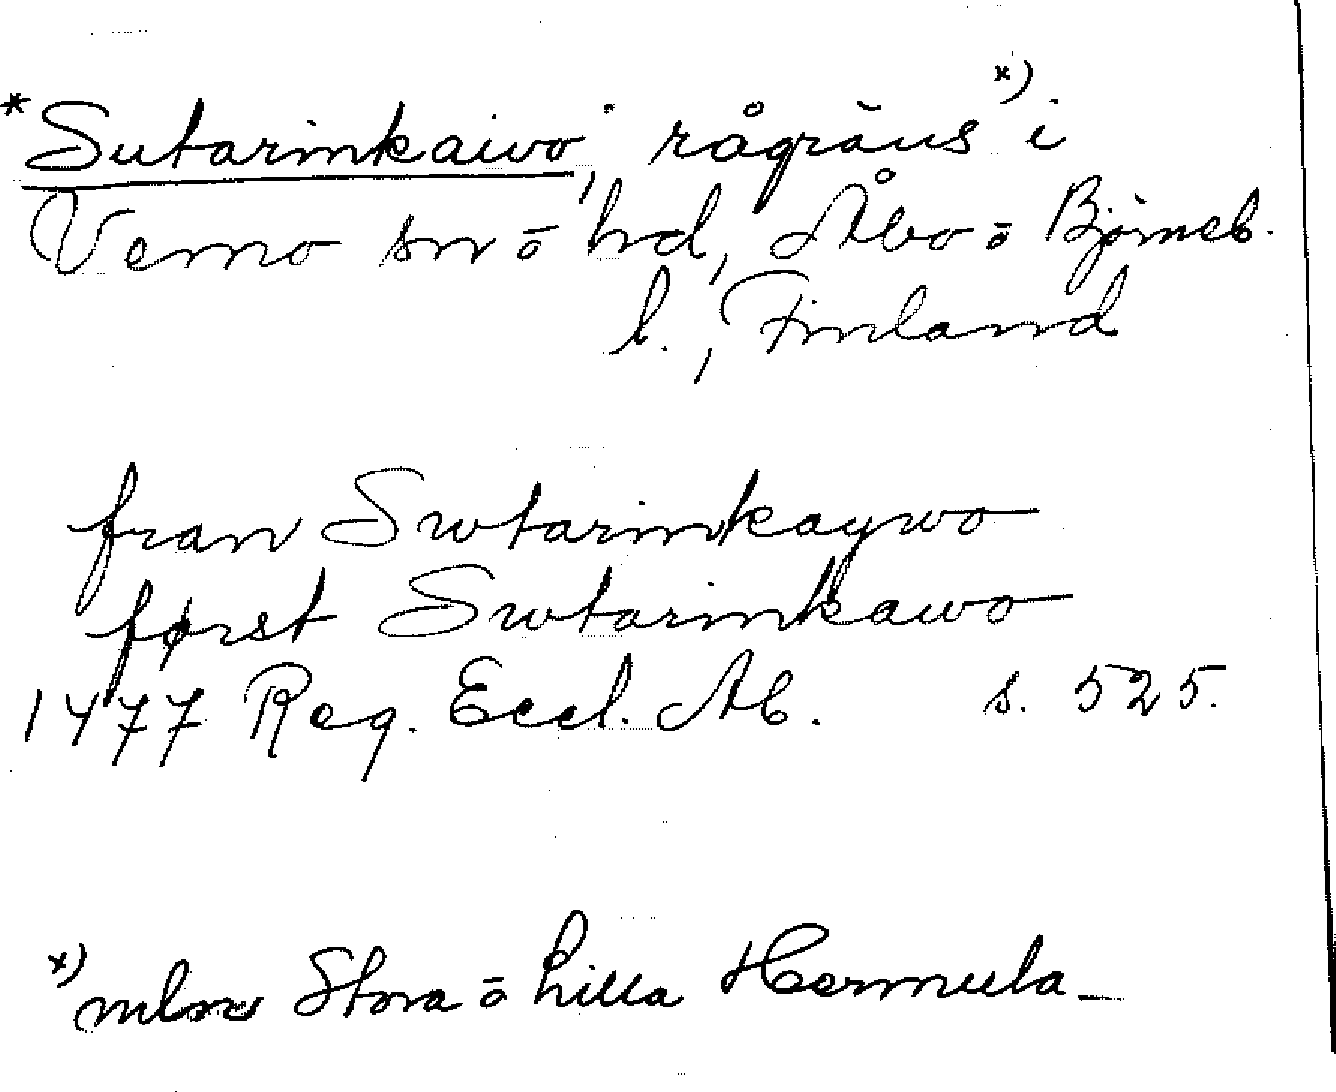 *Sutarinkaivo, rågräns *) i
Vemo sn o hd, Åbo o Björneb.
l., Finland
fran Swtarinkaywo
först Swtarinkawo
1477 Reg. Eccl. Ab. s. 525.
*) mlm Stora o Lilla Hermula